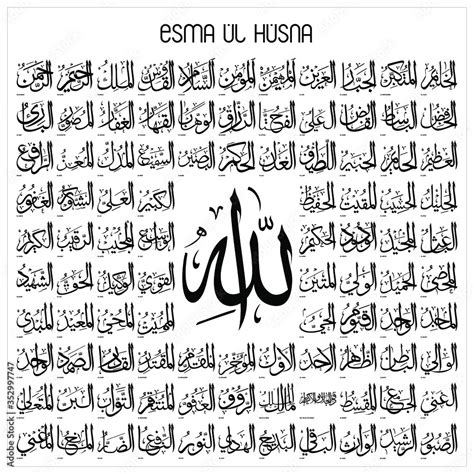 ESMA ÜL HÜSNA
الخالق المتكبر الجبار العزيز المهيمن المؤمن السلام القدوس الملك الرحيم الرحمن
الخافض الباسط القابض العليم الفتاح الرزاق الوهاب القهار الغفار المصور البارئ
العظيم الحليم الخبير اللطيف العدل الحكم البصير السميع المذل المعز الرافع
الجليل الحسيب المقيت الحفيظ الكبير العلي الشكور الغفور
الباعث المجيد الودود الحكيم الواسع المجيب الرقيب الكريم
المحصي الحميد الولي المتين القوي الوكيل الحق الشهيد
الله
الماجد الواجد القيوم الحي المميت المحيي المعيد المبدئ
الوالي الباطن الظاهر الآخر الأول المؤخر المقدم المقتدر القادر الصمد الواحد
الغني الجامع المقسط ذو الجلال والإكرام مالك الملك الرؤوف العفو المنتقم التواب البر المتعالي
الصبور الرشيد الوارث الباقي البديع الهادي النور النافع الضار المانع المغني
Adobe Stock | #352997747